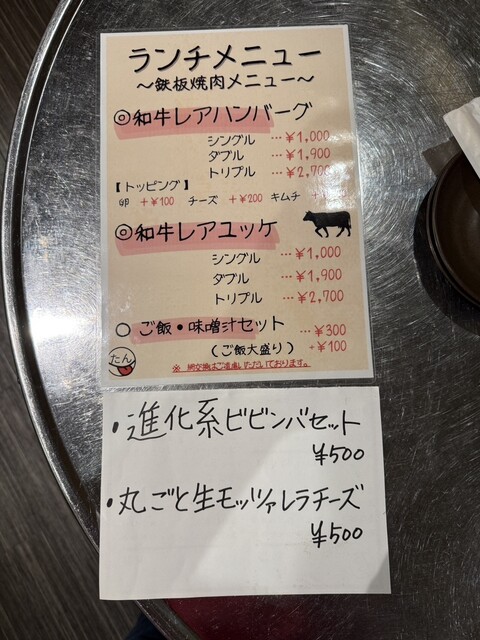 ランチメニュー
～鉄板焼肉メニュー～
◎和牛レアハンバーグ
シングル …￥1,000
ダブル …￥1,900
トリプル …￥2,700
【トッピング】
卵 +￥100 チーズ +￥200 キムチ
◎和牛レアユッケ
シングル …￥1,000
ダブル …￥1,900
トリプル …￥2,700
○ ご飯・味噌汁セット …￥300
(ご飯大盛り) +￥100
たん
※ 網交換はご遠慮いただいております。
・進化系ビビンバセット
￥500
・丸ごと生モッツァレラチーズ
￥500